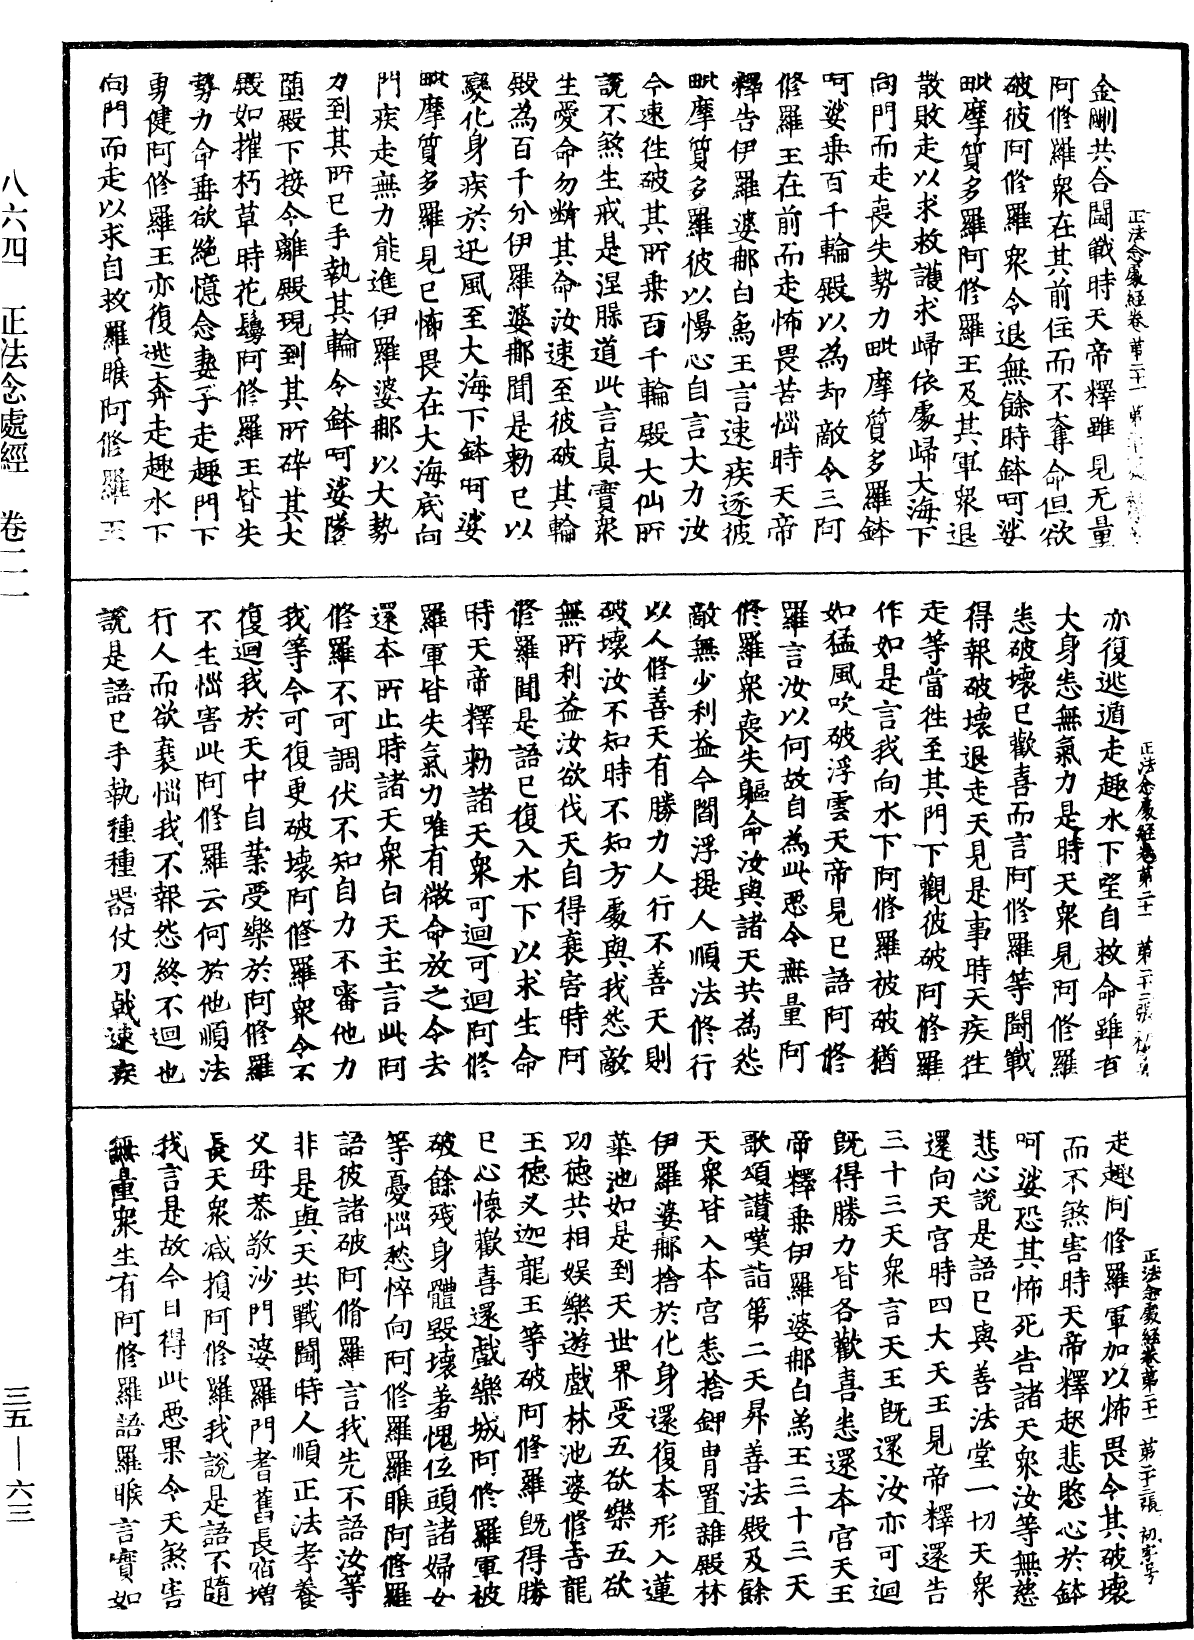 金剛共合鬪戰時天帝釋雖見无量
阿修羅衆在其前住而不奪命但欲
破彼阿修羅衆令退無餘時鉢呵娑
毗摩質多羅阿修羅王及其軍衆退
散敗走以求救護求歸依處歸大海下
向門而走喪失勢力毗摩質多羅鉢
呵娑乗百千輪殿以為却敵令三阿
修羅王在前而走怖畏苦惱時天帝
釋告伊羅婆那白為王言速疾逐彼
毗摩質多羅彼以慢心自言大力汝
今速往破其所乗百千輪殿大仙所
說不煞生戒是涅槃道此言真實衆
生愛命勿斷其命汝速至彼破其輪
殿為百千分伊羅婆那聞是勅已以
變化身疾於迅風至大海下鉢呵娑
毗摩質多羅見已怖畏在大海底向
門疾走無力能進伊羅婆那以大勢
力到其所已手執其輪令鉢呵娑墜
墮殿下接令離殿現到其所碎其大
殿如摧朽草時花鬘阿修羅王皆失
勢力命垂欲絕憶念妻子走趣門下
勇健阿修羅王亦復逃奔走趣水下
向門而走以求自救羅睺阿修羅王
正法念處經卷第二十一
亦復逃遁走趣水下望自救命雖有
大身悉無氣力是時天衆見阿修羅
悉破壞已歡喜而言阿修羅等鬪戰
得報破壞退走天見是事時天疾往
走等當往至其門下觀彼破阿修羅
作如是言我向水下阿修羅被破猶
如猛風吹破浮雲天帝見已語阿修
羅言汝以何故自為此惡令無量阿
修羅衆喪失軀命汝與諸天共為怨
敵無少利益今閻浮提人順法修行
以人修善天有勝力人行不善天則
破壞汝不知時不知方處與我怨敵
無所利益汝欲伐天自得衰害時阿
修羅聞是語已復入水下以求生命
時天帝釋勅諸天衆可迴可迴阿修
羅軍皆失氣力唯有微命放之令去
還本所止時諸天衆白天主言此阿
修羅不可調伏不知自力不審他力
我等今可復更破壞阿修羅衆令不
復迴我於天中自業受樂於阿修羅
不生惱害此阿修羅云何於他順法
行人而欲衰惱我不報怨終不迴也
說是語已手執種種器仗刀戟速疾
正法念處經卷第二十一 第二十二張
走趣阿修羅軍加以怖畏令其破壞
而不煞害時天帝釋起悲愍心於鉢
呵娑恐其怖死告諸天衆汝等無慈
悲心說是語已與善法堂一切天衆
還向天宮時四大天王見帝釋還告
三十三天衆言天王旣還汝亦可迴
旣得勝力皆各歡喜悉還本宮天王
帝釋乗伊羅婆那白為王三十三天
歌頌讃嘆詣第二天昇善法殿及餘
天衆皆入本宮悉捨鉀胄置雜殿林
伊羅婆那捨於化身還復本形入蓮
華池如是到天世界受五欲樂五欲
功德共相娱樂遊戲林池婆修吉龍
王德叉迦龍王等破阿修羅旣得勝
已心懷歡喜還戲樂城阿修羅軍被
破餘殘身體毀壞羞愧低頭諸婦女
等憂惱愁悴向阿修羅羅睺阿修羅
語彼諸破阿脩羅言我先不語汝等
非是與天共戰鬪時人順正法孝養
父母恭敬沙門婆羅門耆舊長宿增
長天衆减損阿修羅我說是語不隨
我言是故今日得此惡果令天煞害
無量衆生有阿修羅語羅睺言實如
正法念處經卷第二十一 第二十三張 初字号
八六四 正法念處經 卷二一
三五—六三